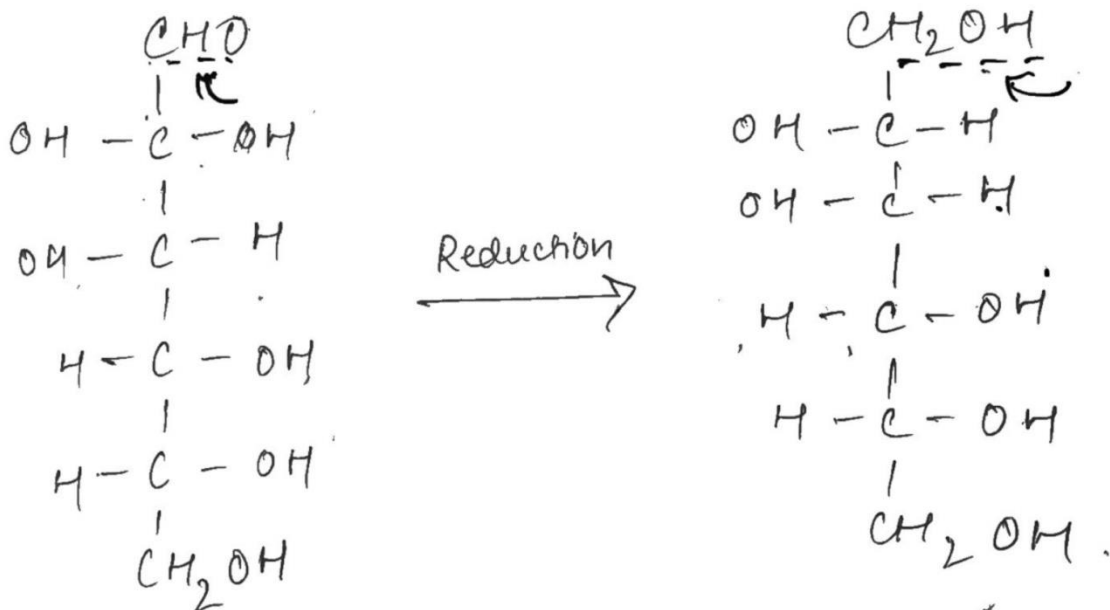 CHO
OH - C - OH
OH - C - H
H - C - OH
H - C - OH
CH2OH
Reduction
CH2OH
OH - C - H
OH - C - H
H - C - OH
H - C - OH
CH2OH.